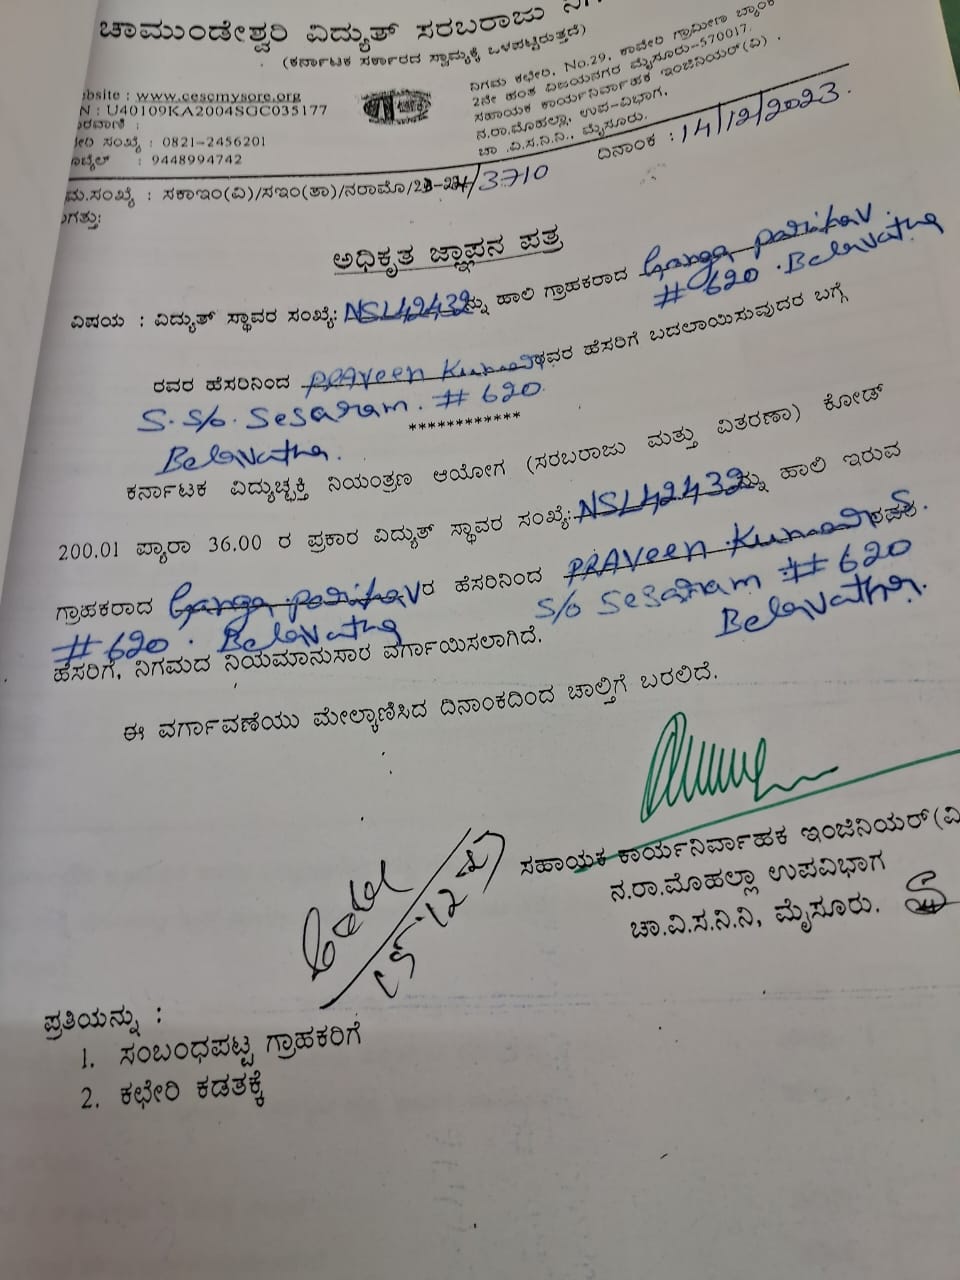 ಚಾಮುಂಡೇಶ್ವರಿ ವಿದ್ಯುತ್ ಸರಬರಾಜು
(ಕರ್ನಾಟಕ ಸರ್ಕಾರದ ಸ್ವಾಮ್ಯಕ್ಕೆ ಒಳಪಟ್ಟಿರುತ್ತದೆ)
bsite : www.cescmysore.org
N : U40109KA2004SGC035177
ಸಂಖ್ಯೆ : 0821-2456201
: 9448994742
ನಿಗಮ ಕಛೇರಿ, No.29, ಕಾವೇರಿ ಗ್ರಾಮೀಣ ಬ್ಯಾಂಕ್
2ನೇ ಹಂತ ವಿಜಯನಗರ ಮೈಸೂರು-570017.
ಸಹಾಯಕ ಕಾರ್ಯನಿರ್ವಾಹಕ ಇಂಜಿನಿಯರ್(ವಿ) .
ನ.ರಾ.ಮೊಹಲ್ಲಾ, ಉಪ-ವಿಭಾಗ,
ಚಾ .ವಿ.ಸ.ನಿ.ನಿ., ಮೈಸೂರು.
ದಿನಾಂಕ : 14/12/2023.
ಮ.ಸಂಖ್ಯೆ : ಸಕಾಇಂ(ವಿ)/ಸಇಂ(ತಾ)/ನರಾಮೊ/23-24/3710
ಅಧಿಕೃತ ಜ್ಞಾಪನ ಪತ್ರ
ವಿಷಯ : ವಿದ್ಯುತ್ ಸ್ಥಾವರ ಸಂಖ್ಯೆ: NSL42432ನ್ನು ಹಾಲಿ ಗ್ರಾಹಕರಾದ Ganga parihav.
# 620 . Belavatha
ರವರ ಹೆಸರಿನಿಂದ PRAveen Kumar ರವರ ಹೆಸರಿಗೆ ಬದಲಾಯಿಸುವುದರ ಬಗ್ಗೆ
S. S/o. Sesaram. # 620.
************
Belavatha.
ಕರ್ನಾಟಕ ವಿದ್ಯುಚ್ಛಕ್ತಿ ನಿಯಂತ್ರಣ ಆಯೋಗ (ಸರಬರಾಜು ಮತ್ತು ವಿತರಣಾ) ಕೋಡ್
200.01 ಪ್ಯಾರಾ 36.00 ರ ಪ್ರಕಾರ ವಿದ್ಯುತ್ ಸ್ಥಾವರ ಸಂಖ್ಯೆ: NSL42432ನ್ನು ಹಾಲಿ ಇರುವ
ಗ್ರಾಹಕರಾದ Ganga parihav ರ ಹೆಸರಿನಿಂದ PRAveen Kumar S. ರವರ
# 620 . Belavatha S/o Sesaram # 620
Belavatha.
ಹೆಸರಿಗೆ, ನಿಗಮದ ನಿಯಮಾನುಸಾರ ವರ್ಗಾಯಿಸಲಾಗಿದೆ.
ಈ ವರ್ಗಾವಣೆಯು ಮೇಲ್ಕಾಣಿಸಿದ ದಿನಾಂಕದಿಂದ ಚಾಲ್ತಿಗೆ ಬರಲಿದೆ.
ಸಹಾಯಕ ಕಾರ್ಯನಿರ್ವಾಹಕ ಇಂಜಿನಿಯರ್(ವಿ
ನ.ರಾ.ಮೊಹಲ್ಲಾ ಉಪವಿಭಾಗ
ಚಾ.ವಿ.ಸ.ನಿ.ನಿ, ಮೈಸೂರು.
ಪ್ರತಿಯನ್ನು :
1. ಸಂಬಂಧಪಟ್ಟ ಗ್ರಾಹಕರಿಗೆ
2. ಕಛೇರಿ ಕಡತಕ್ಕೆ